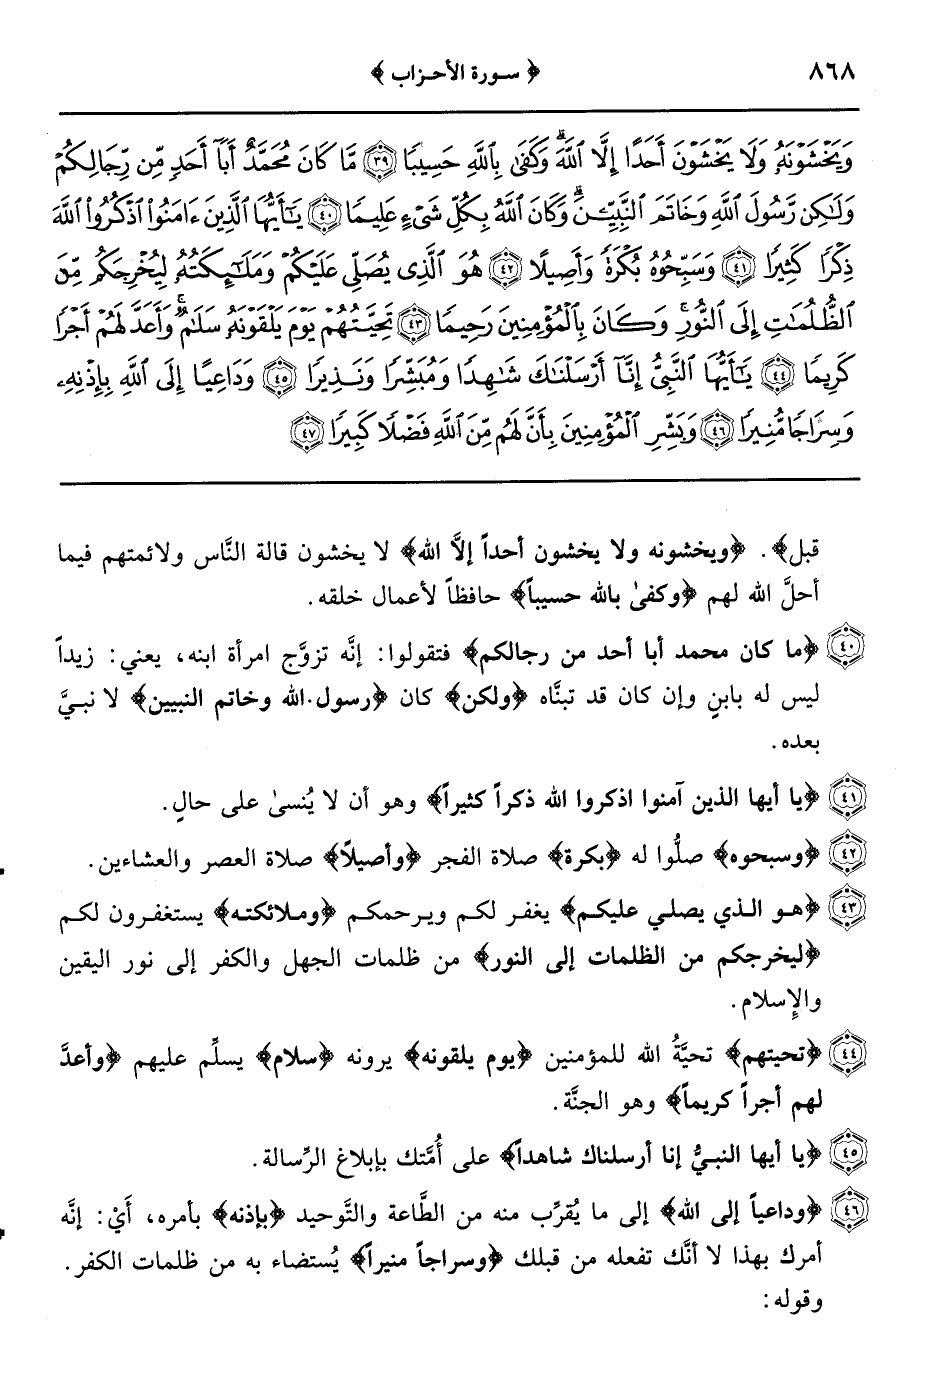 ٨٦٨ ﴿ سورة الأحزاب ﴾
وَيَخْشَوْنَهُۥ وَلَا يَخْشَوْنَ أَحَدًا إِلَّا ٱللَّهَۗ وَكَفَىٰ بِٱللَّهِ حَسِيبًا ٣٩ مَّا كَانَ مُحَمَّدٌ أَبَآ أَحَدٍ مِّن رِّجَالِكُمْ
وَلَٰكِن رَّسُولَ ٱللَّهِ وَخَاتَمَ ٱلنَّبِيِّـۧنَۗ وَكَانَ ٱللَّهُ بِكُلِّ شَىْءٍ عَلِيمًا ٤٠ يَٰٓأَيُّهَا ٱلَّذِينَ ءَامَنُوا۟ ٱذْكُرُوا۟ ٱللَّهَ
ذِكْرًا كَثِيرًا ٤١ وَسَبِّحُوهُ بُكْرَةً وَأَصِيلًا ٤٢ هُوَ ٱلَّذِى يُصَلِّى عَلَيْكُمْ وَمَلَٰٓئِكَتُهُۥ لِيُخْرِجَكُم مِّنَ
ٱلظُّلُمَٰتِ إِلَى ٱلنُّورِۚ وَكَانَ بِٱلْمُؤْمِنِينَ رَحِيمًا ٤٣ تَحِيَّتُهُمْ يَوْمَ يَلْقَوْنَهُۥ سَلَٰمٌۚ وَأَعَدَّ لَهُمْ أَجْرًا
كَرِيمًا ٤٤ يَٰٓأَيُّهَا ٱلنَّبِىُّ إِنَّآ أَرْسَلْنَٰكَ شَٰهِدًا وَمُبَشِّرًا وَنَذِيرًا ٤٥ وَدَاعِيًا إِلَى ٱللَّهِ بِإِذْنِهِۦ
وَسِرَاجًا مُّنِيرًا ٤٦ وَبَشِّرِ ٱلْمُؤْمِنِينَ بِأَنَّ لَهُم مِّنَ ٱللَّهِ فَضْلًا كَبِيرًا ٤٧
قبل﴾. ﴿ويخشونه ولا يخشون أحداً إلَّا الله﴾ لا يخشون قالة النَّاس ولائمتهم فيما
أحلَّ الله لهم ﴿وكفىٰ بالله حسيباً﴾ حافظاً لأعمال خلقه.
٤٠ ﴿ما كان محمد أبا أحد من رجالكم﴾ فتقولوا: إنَّه تزوَّج امرأة ابنه، يعني: زيداً
ليس له بابنٍ وإن كان قد تبنَّاه ﴿ولكن﴾ كان ﴿رسول الله وخاتم النبيين﴾ لا نبيَّ
بعده.
٤١ ﴿يا أيها الذين آمنوا اذكروا الله ذكراً كثيراً﴾ وهو أن لا يُنسىٰ على حالٍ.
٤٢ ﴿وسبحوه﴾ صلُّوا له ﴿بكرة﴾ صلاة الفجر ﴿وأصيلاً﴾ صلاة العصر والعشاءين.
٤٣ ﴿هو الذي يصلي عليكم﴾ يغفر لكم ويرحمكم ﴿وملائكته﴾ يستغفرون لكم
﴿ليخرجكم من الظلمات إلى النور﴾ من ظلمات الجهل والكفر إلى نور اليقين
والإِسلام.
٤٤ ﴿تحيتهم﴾ تحيَّةُ الله للمؤمنين ﴿يوم يلقونه﴾ يرونه ﴿سلام﴾ يسلِّم عليهم ﴿وأعدَّ
لهم أجراً كريماً﴾ وهو الجنَّة.
٤٥ ﴿يا أيها النبيُّ إنا أرسلناك شاهداً﴾ على أُمَّتك بإبلاغ الرِّسالة.
٤٦ ﴿وداعياً إلى الله﴾ إلى ما يُقرِّب منه من الطَّاعة والتَّوحيد ﴿بإذنه﴾ بأمره، أَيْ: إنَّه
أمرك بهذا لا أنَّك تفعله من قبلك ﴿وسراجاً منيراً﴾ يُستضاء به من ظلمات الكفر.
وقوله: